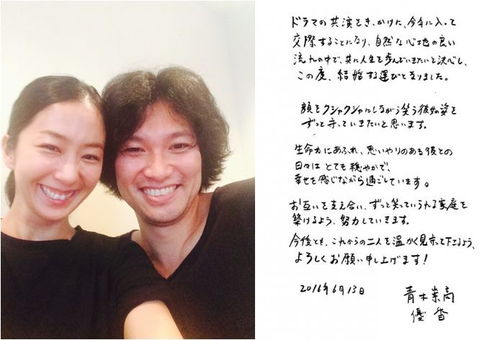 ドラマの共演をきっかけに、今年に入って
交際することになり、自然な心地の良い
流れの中で、共に人生を歩んでいきたいと決心し、
この度、結婚する運びとなりました。
顔をクシャクシャにしながら笑う彼女の姿を
ずっと守っていきたいと思います。
生命力にあふれ、思いやりのある彼との
日々は とても穏やかで、
幸せを感じながら過ごしています。
お互いを支え合い、ずっと笑っていられる家庭を
築けるよう、努力していきます。
今後とも、これからの二人を温かく見守って下さるよう、
よろしくお願い申し上げます！
2016年6月13日
青木崇高
優香